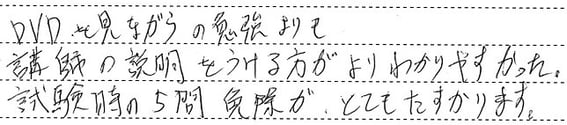 DVDを見ながらの勉強よりも
講師の説明をうける方がよりわかりやすかった。
試験時の5問免除が、とてもたすかります。